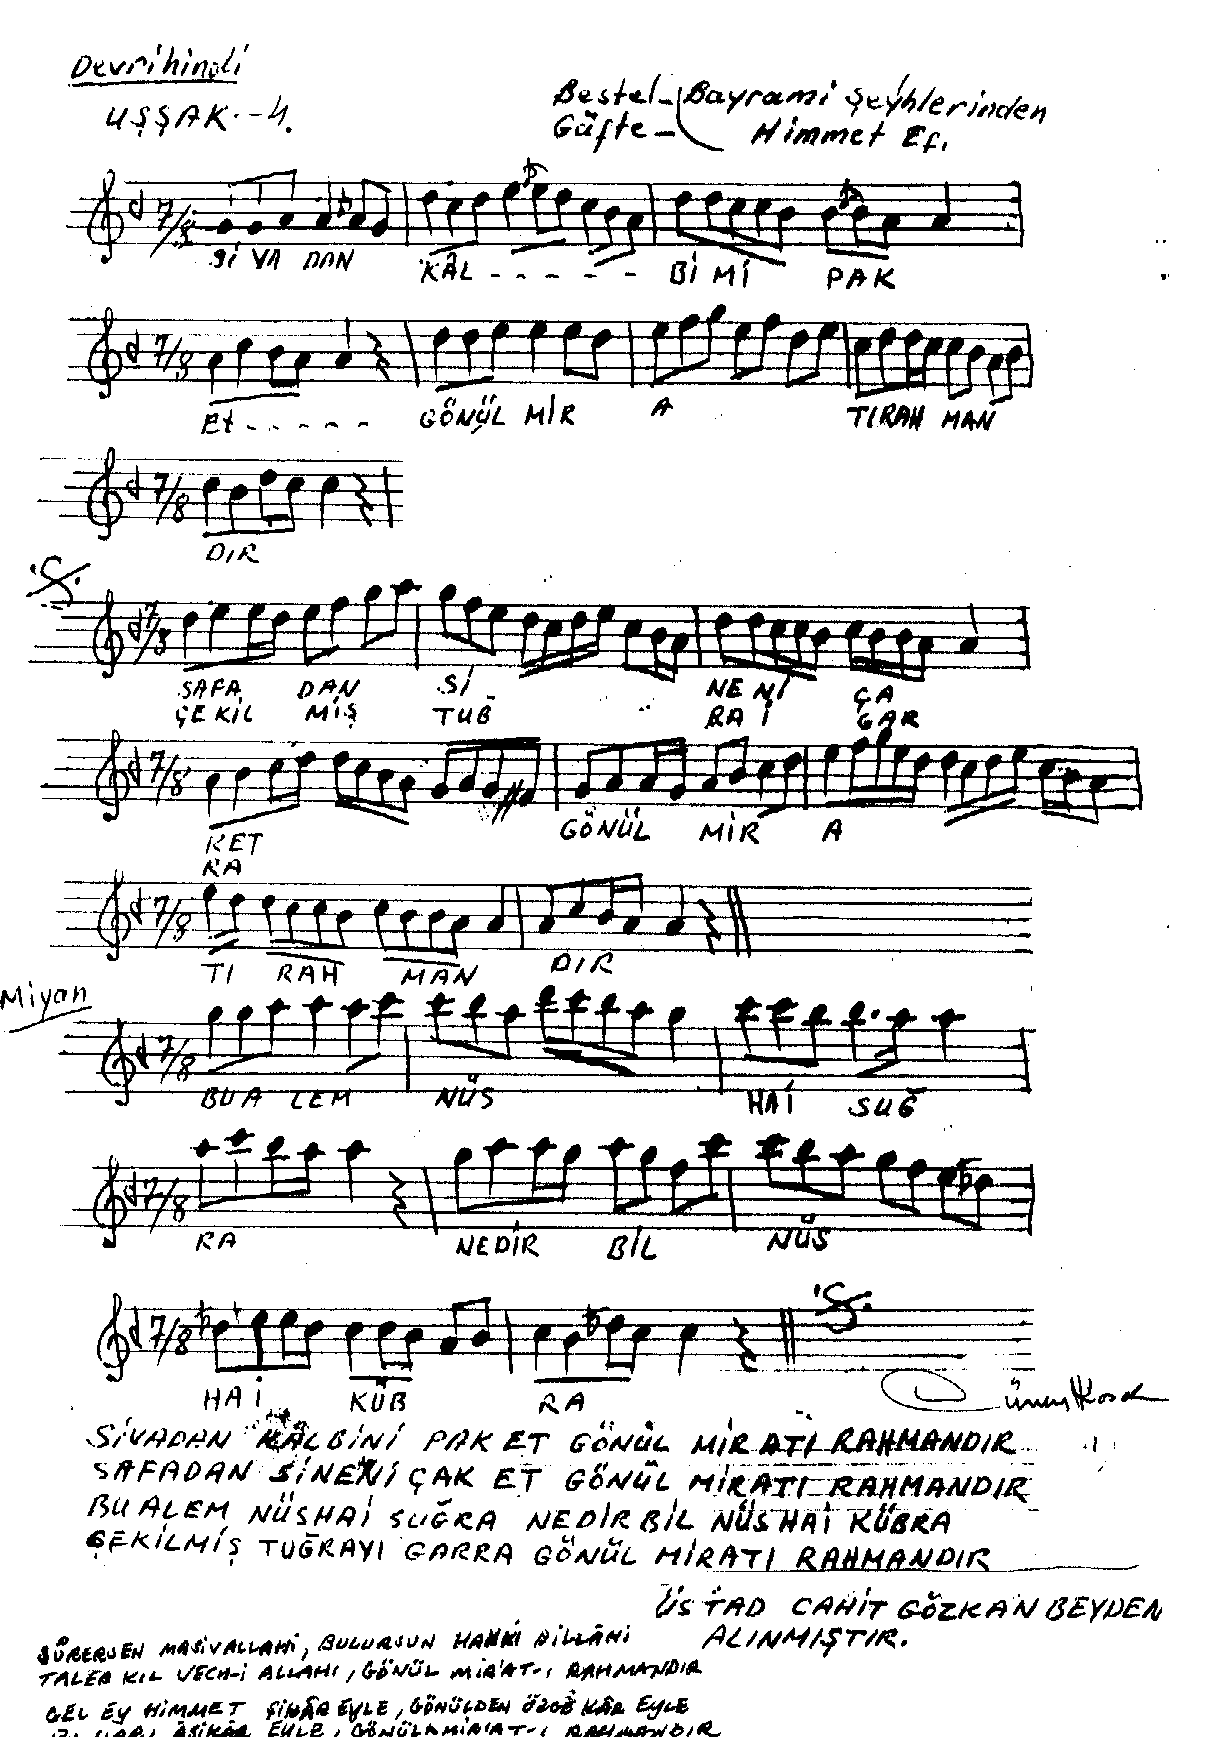 Devrihindi
UŞŞAK.-4.
Bestel- Bayrami şeyhlerinden
Güfte- Himmet Ef.
7/8
SİVADAN KÂL - - - - - BİMİ PAK
7/8
Et - - - - - GÖNÜL MİR A TIRAH MAN
7/8
DIR
7/8
SAFA DAN Sİ NENİ ÇA
ÇEKİL MİŞ TUĞ RAİ GAR
7/8
KET GÖNÜL MİR A
RA
7/8
TI RAH MAN DIR
Miyan
7/8
BUA LEM NÜS HAİ SUĞ
7/8
RA NEDİR BİL NÜS
7/8
HAİ KÜB RA
SİVADAN KÂLBİNİ PAK ET GÖNÜL MİRATI RAHMANDIR
SAFADAN SİNENİ ÇAK ET GÖNÜL MİRATI RAHMANDIR
BU ALEM NÜSHAİ SUĞRA NEDİR BİL NÜSHAİ KÜBRA
ÇEKİLMİŞ TUĞRAYI GARRA GÖNÜL MİRATI RAHMANDIR
ÜSTAD CAHİT GÖZKAN BEYDEN
ALINMIŞTIR.
SÜRERSEN MASİVALLAHİ, BULURSUN HAKKI BİLLÂHİ
TALEB KIL VECH-İ ALLAHI, GÖNÜL MİR'AT-I RAHMANDIR
GEL EY HİMMET ŞİKÂR EYLE, GÖNÜLDEN KÂR EYLE
AŞİKÂR EYLE, GÖNÜL MİR'AT-I RAHMANDIR